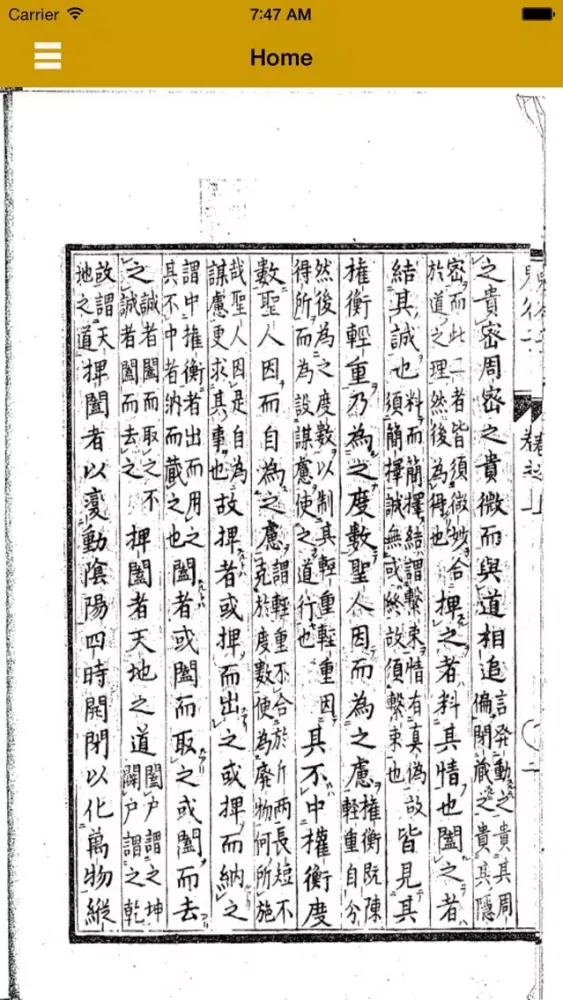 Carrier
7:47 AM
Home
鬼谷子
卷之上
二
之貴密周密之貴微而與道相追言發動之貴其周
偏閉藏之貴其隱
密而此二者皆須微妙合
於道之理然後為得也捭之者料其情也闔之者
結其誠也料而簡擇結謂繫束情有真偽故
須簡擇誠無或終故須繫束也皆見其
權衡輕重乃為之度數聖人因而為之慮權衡既陳
輕重自分
然後為之度數以制其輕重輕重因
得所而為設謀慮使之道行也其不中權衡度
數聖人因而自為之慮謂輕重不合於斤兩長短不
充於度數便為廢物何所施
哉聖人因是自為
謀慮更求其事也故捭者或捭而出之或捭而納之
謂中權衡者出而用之
其不中者納而藏之也闔者或闔而取之或闔而去
之誠者闔而取之不
誠者闔而去之捭闔者天地之道闔户謂之坤
闢户謂之乾
故謂天
地之道捭闔者以變動陰陽四時開閉以化萬物縱